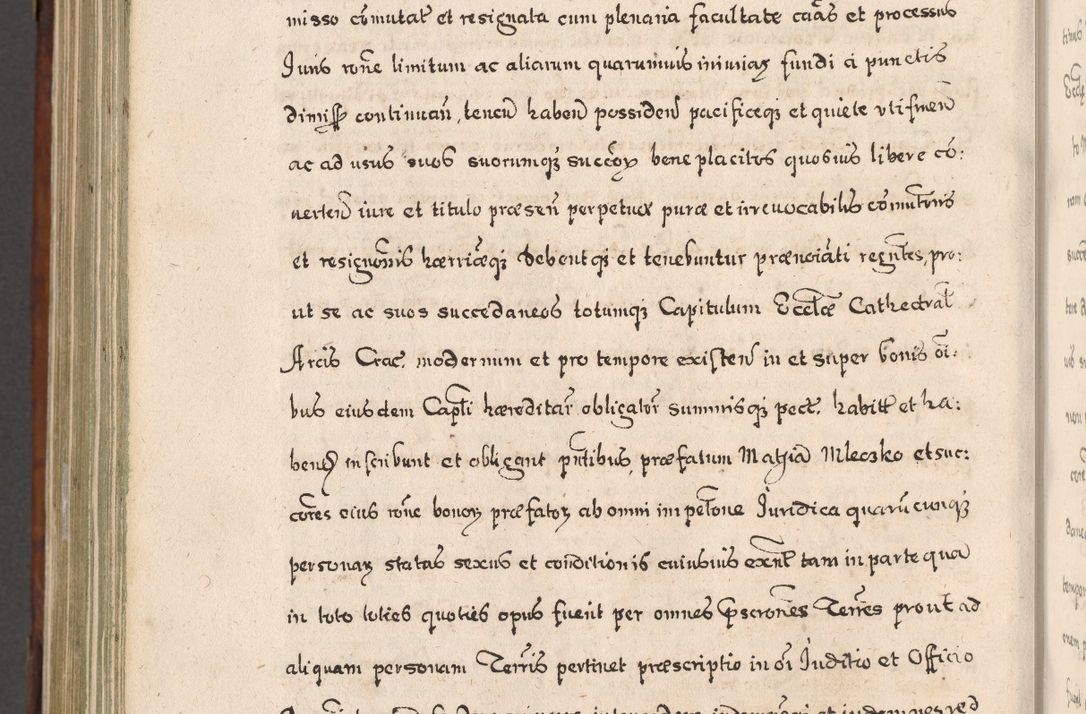 misso com̄utat et resignata cum plenaria facultate caās et processus
Juris rōne limitum ac aliarum quarumvis iniuriaꝝ fundi à punctis
dimiss continuan̄, tenen̄ haben̄ possiden̄ pacificeqꝫ et quiete vtifruen̄
ac ad usus suos suorumqꝫ succōꝝ bene placitos quosvis libere cō:
verten̄ iure et titulo præsen̄ perpetuæ puræ et irrevocabilis com̄utōnis
et resignōnis hæc Debentqꝫ et tenebuntur prænōiāti regn̄tes, pro:
ut se ac suos succedaneos totumqꝫ Capitulum Eccłæ Cathedral
Arcis Crac. modernum et pro tempore existen̄ in et super bonis oī:
bus eiusdem Capłi hæreditar̄ obligatōr summisqꝫ pect. habitt et ha:
bend inscribunt et obligant pn̄tibus, præfatum Mathiā Mleczko et suc:
cōres eius rōne bonoꝝ præfatoꝝ ab omni impetōne Juridica quarūcunqꝫ
personaꝝ status sexus et conditionis cuiusvis exn̄t tam in parte qua
in toto toties quoties opus fuerit per omnes pscrōnes Terr̄es prout ad
aliquam personam Terr̄is pertinet præscriptio in oī Juditio et Officio